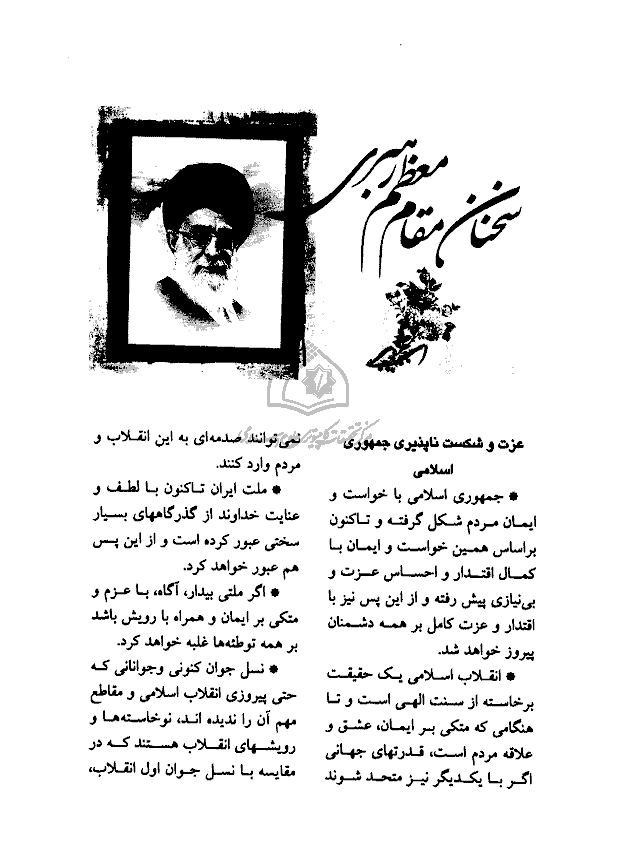 سخنان مقام معظم رهبری
عزت و شکست ناپذیری جمهوری
اسلامی
* جمهوری اسلامی با خواست و
ایمان مردم شکل گرفته و تاکنون
براساس همین خواست و ایمان با
کمال اقتدار و احساس عزت و
بی‌نیازی پیش رفته و از این پس نیز با
اقتدار و عزت کامل بر همه دشمنان
پیروز خواهد شد.
* انقلاب اسلامی یک حقیقت
برخاسته از سنت الهی است و تا
هنگامی که متکی بر ایمان، عشق و
علاقه مردم است، قدرتهای جهانی
اگر با یکدیگر نیز متحد شوند
نمی‌توانند صدمه‌ای به این انقلاب و
مردم وارد کنند.
* ملت ایران تاکنون با لطف و
عنایت خداوند از گذرگاههای بسیار
سختی عبور کرده است و از این پس
هم عبور خواهد کرد.
* اگر ملتی بیدار، آگاه، با عزم و
متکی بر ایمان و همراه با رویش باشد
بر همه توطئه‌ها غلبه خواهد کرد.
* نسل جوان کنونی وجوانانی که
حتی پیروزی انقلاب اسلامی و مقاطع
مهم آن را ندیده اند، نوخاسته‌ها و
رویشهای انقلاب هستند که در
مقایسه با نسل جوان اول انقلاب،